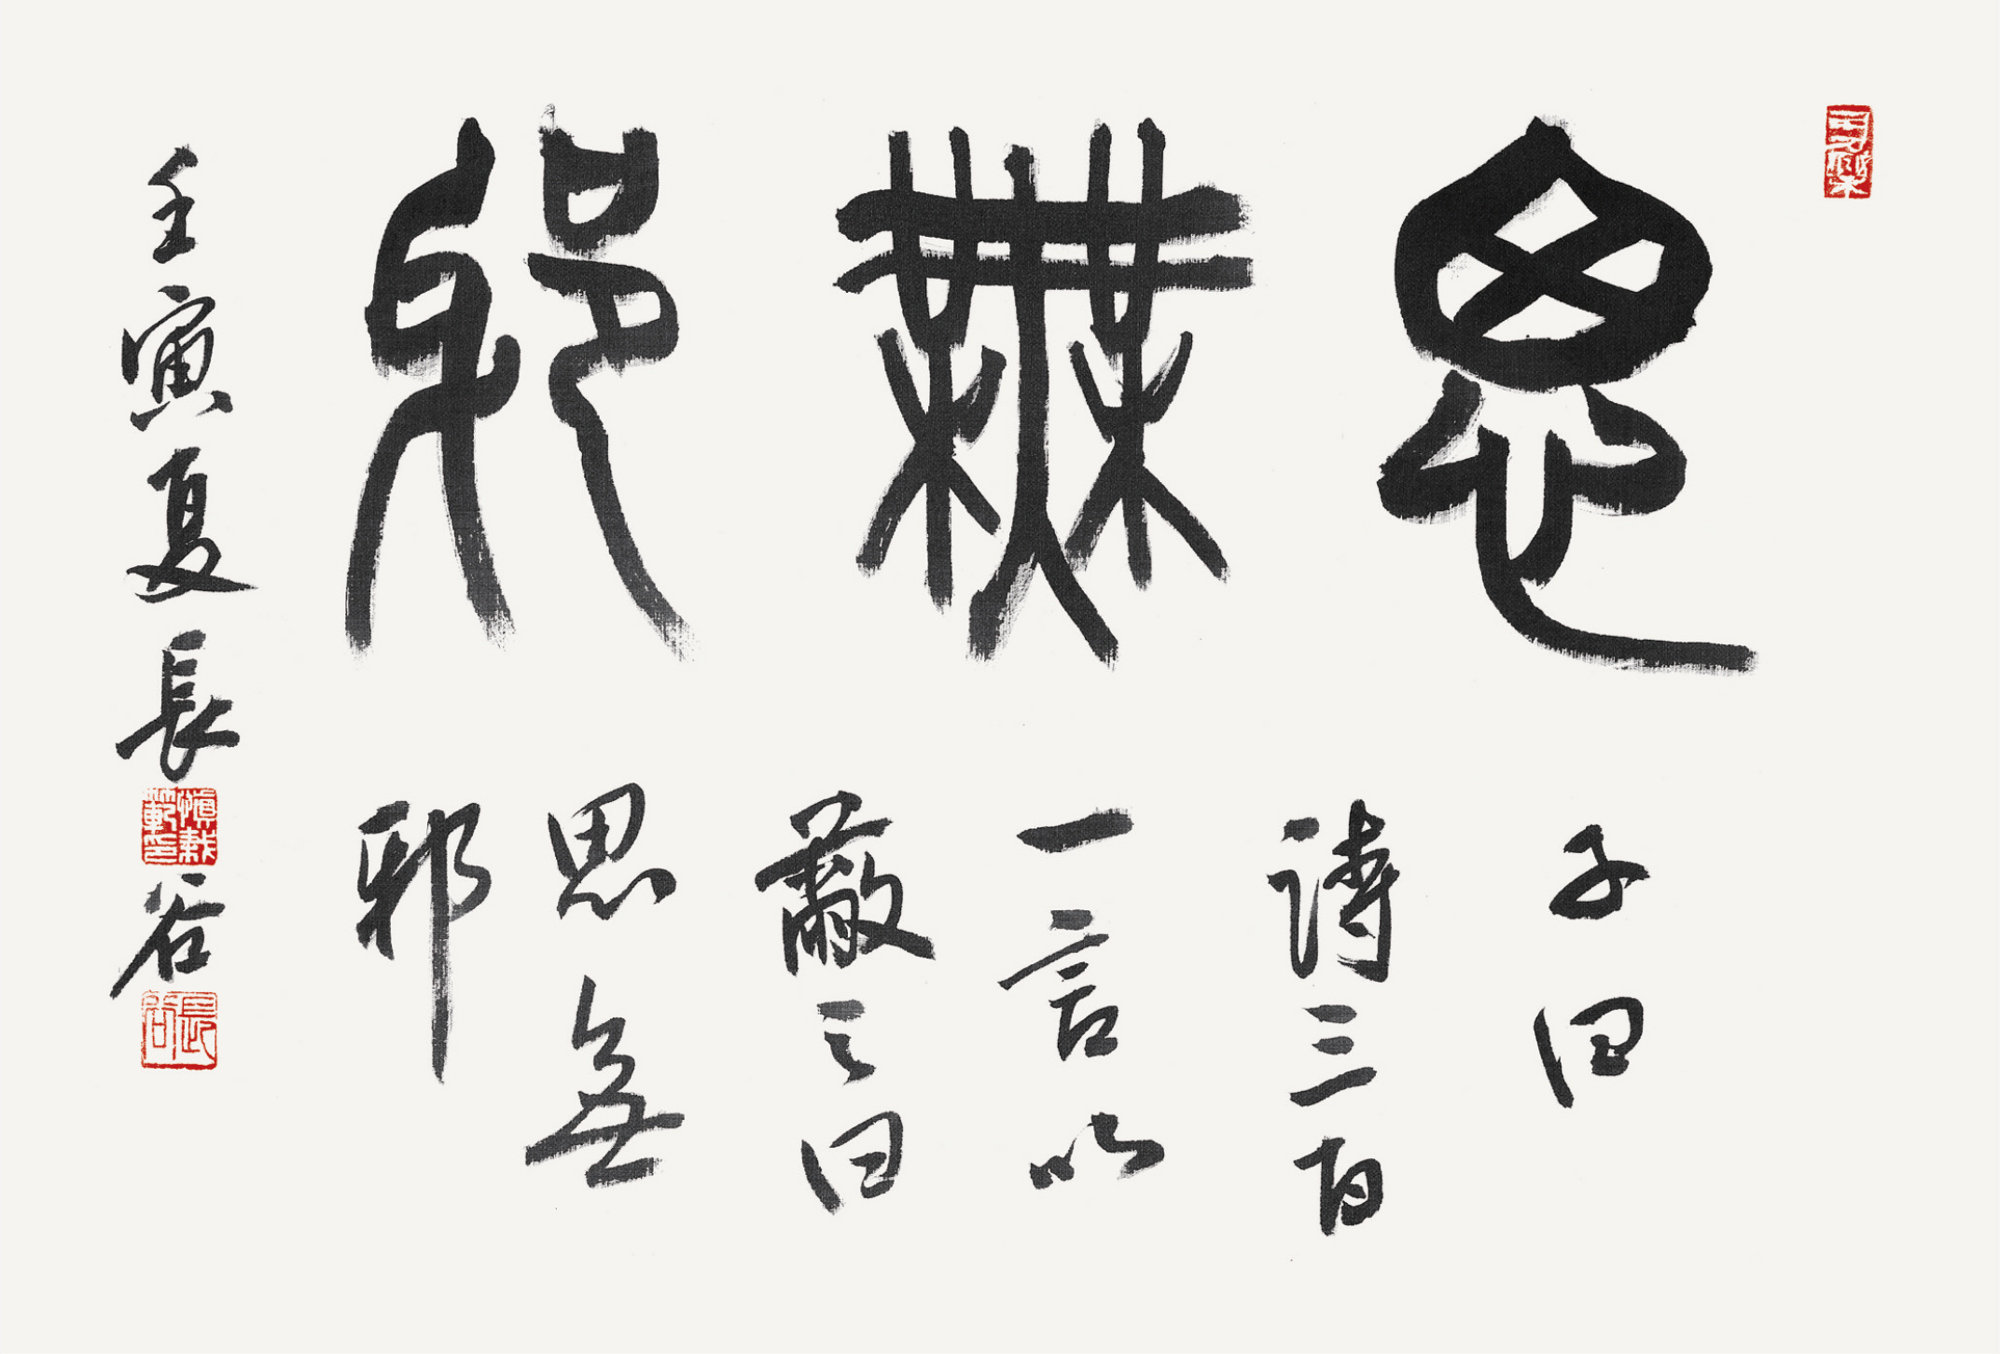 思無邪
子曰
詩三百
一言以
蔽之曰
思無
邪
壬寅夏長谷
長谷